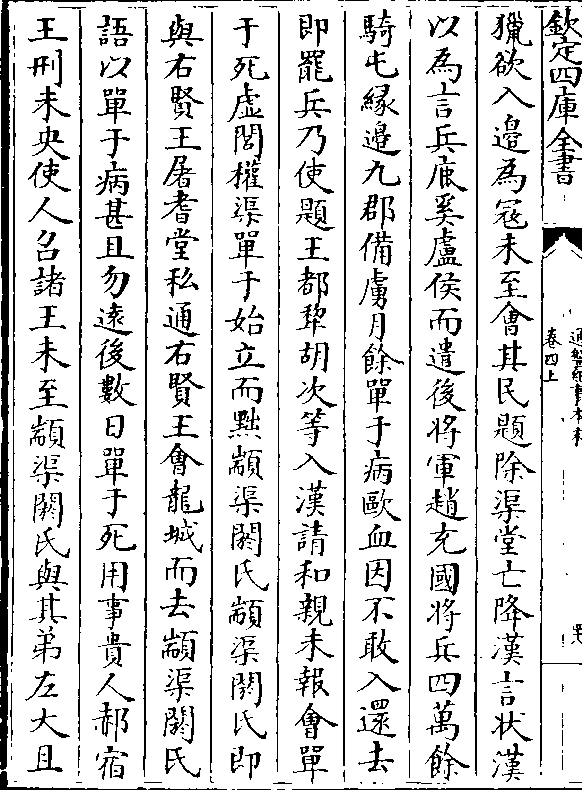 欽定四庫全書
通鑑紀事本末
卷四上
獵欲入邉為冦未至㑹其民題除渠堂亡降漢言状漢
以為言兵𢈔奚盧侯而遣後将軍趙充國将兵四萬餘
騎屯縁邉九郡備虜月餘單于病歐血因不敢入還去
即罷兵乃使題王都犂胡次等入漢請和親未報㑹單
于死虛閭權渠單于始立而黜顓渠閼氏顓渠閼氏即
與右賢王屠耆堂私通右賢王㑹龍城而去顓渠閼氏
語以單于病甚且勿逺後數日單于死用事貴人郝宿
王刑未央使人召諸王未至顓渠閼氏與其弟左大且